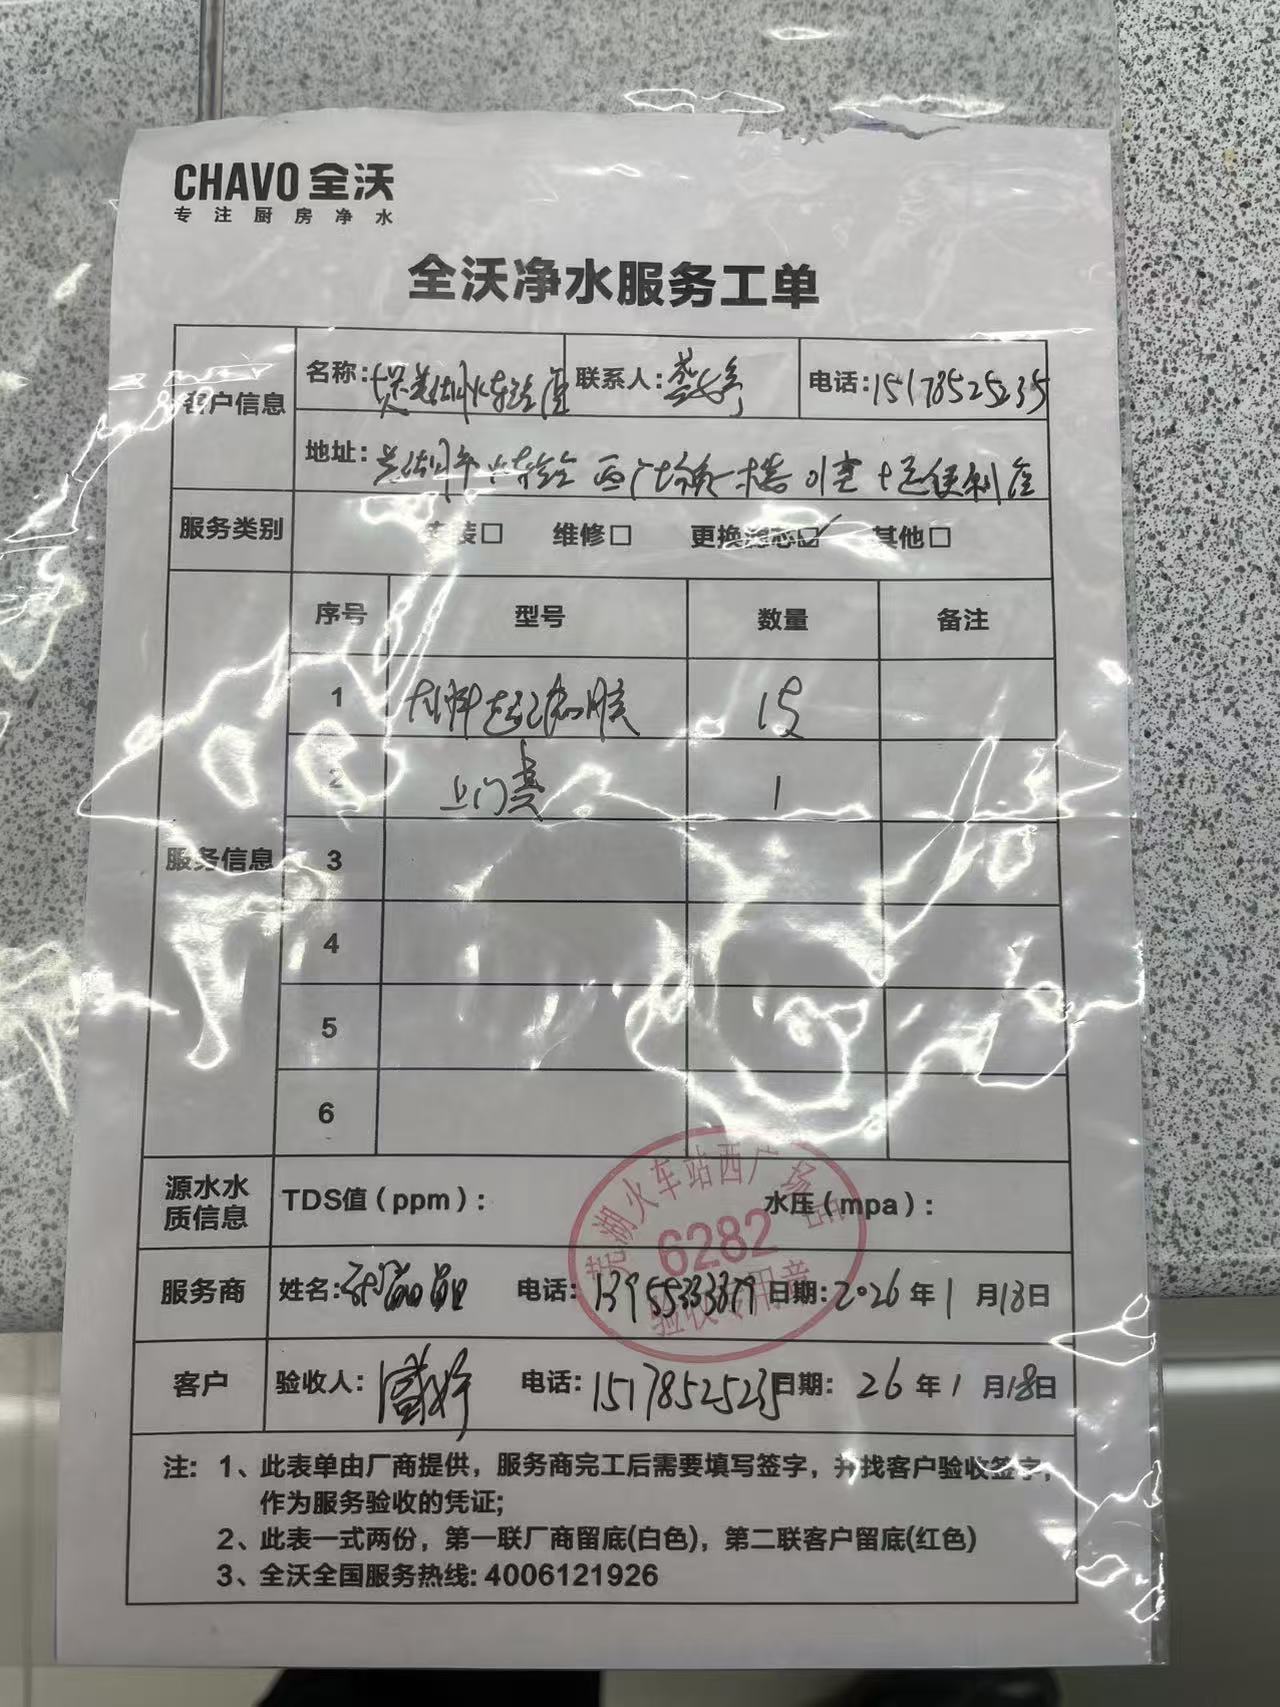 CHAVO 全沃
专注厨房净水
全沃净水服务工单
客户信息
名称: 联系人: 电话:15178525235
地址: 芜湖市火车站西广场一楼
服务类别 安装□ 维修□ 更换滤芯☑ 其他□
服务信息
序号 型号 数量 备注
1 1
2 上门费 1
3
4
5
6
源水水质信息 TDS值(ppm): 水压(mpa):
芜湖火车站西广场店
6282
验收专用章
服务商 姓名: 电话: 日期:2026年1月18日
客户 验收人: 电话:15178525235 日期: 26年1月18日
注: 1、此表单由厂商提供，服务商完工后需要填写签字，并找客户验收签字，
作为服务验收的凭证;
2、此表一式两份，第一联厂商留底(白色)，第二联客户留底(红色)
3、全沃全国服务热线: 4006121926